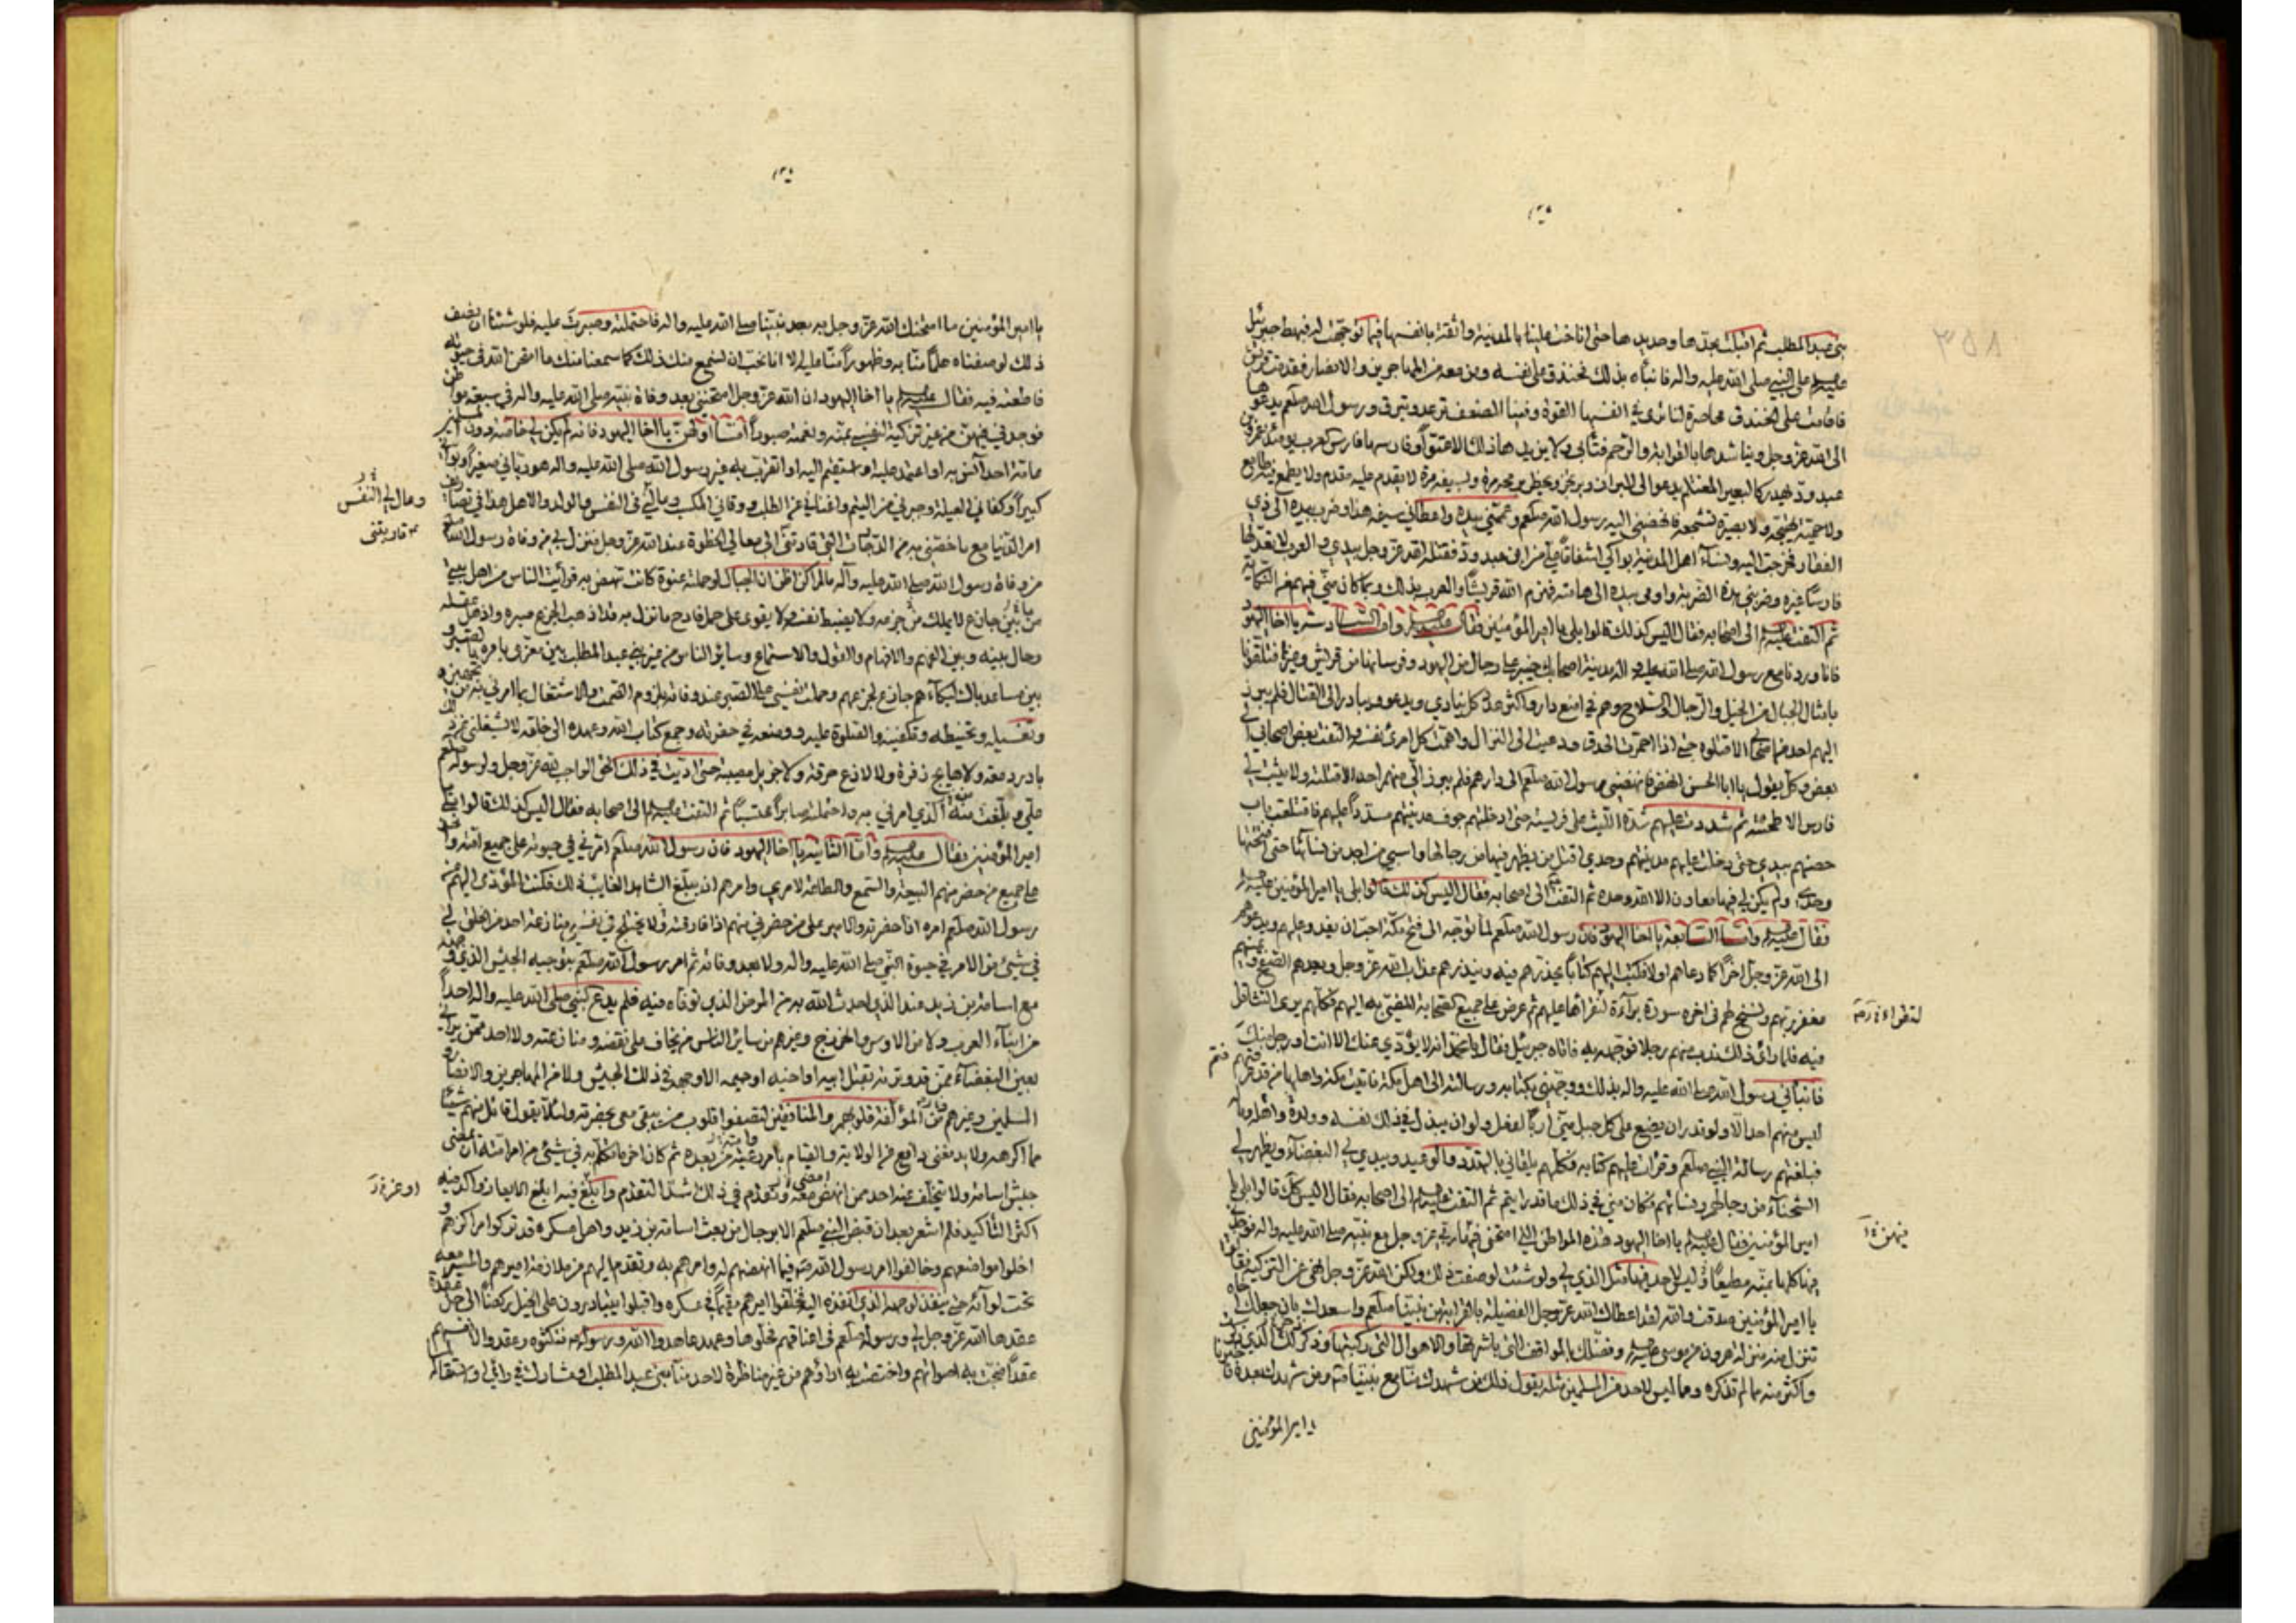 بني عبد المطلب ثم اقبلت بحدها وحديدها حتى اناخت علينا بالمدينة واثقة بانفسها فيما توجهت له فهبط جبرئيل
على النبي صلى الله عليه واله فانبأه بذلك فخندق على نفسه ومن معه من المهاجرين والانصار فقدمت قريش
فاقامت على الخندق محاصرة لنا ترى في انفسها القوة وفينا الضعف ترعد وتبرق ورسول الله صلعم يدعوها
الى الله عز وجل ويناشدها بالقرابة والرحم فتأبى ولا يزيدها ذلك الا عتوا وفارسها فارس العرب يومئذ عمرو بن
عبد ود يهدر كالبعير المغتلم يدعو الى البراز ويرتجز ويخطر برمحه مرة وبسيفه مرة لا يقدم عليه مقدم ولا يطمع فيه طامع
ولا حمية تهيجه ولا بصيرة تشجعه فانهضني اليه رسول الله صلعم وعممني بيده واعطاني سيفه هذا وضرب بيده الى ذي
الفقار فخرجت اليه ونساء اهل المدينة بواكي اشفاقا علي من ابن عبد ود فقتله الله عز وجل بيدي والعرب لا تعد لها
فارسا غيره وضربني هذه الضربة واومى بيده الى هامته فهزم الله قريشا والعرب بذلك وبما كان مني فيهم من النكاية
ثم التفت الى اصحابه فقال اليس كذلك قالوا بلى يا امير المؤمنين فقال واما السادسة يا اخا اليهود
فانا وردنا مع رسول الله صلى الله عليه واله مدينة اصحابك خيبر على رجال من اليهود وفرسانها من قريش وغيرها فتلقونا
بامثال الجبال من الخيل والرجال والسلاح وهم في امنع دار واكثر عدد كل ينادي ويدعو ويبادر الى القتال فلم يبرز
اليهم احد من اصحابي الا قتلوه حتى اذا احمرت الحدق ودعيت الى النزال واهمت كل امرئ نفسه والتفت بعض اصحابي الى
بعض وكل يقول يا ابا الحسن انهض فانهضني رسول الله صلعم الى دارهم فلم يبرز الي منهم احد الا قتلته ولا يثبت لي
فارس الا طحنته ثم شددت عليهم شدة الليث على فريسته حتى ادخلتهم جوف مدينتهم مسددا عليهم فاقتلعت باب
حصنهم بيدي حتى دخلت عليهم مدينتهم وحدي اقتل من يظهر فيها من رجالها واسبي من اجد من نسائها حتى افتتحتها
وحدي ولم يكن لي فيها معاون الا الله وحده ثم التفت الى اصحابه فقال اليس كذلك قالوا بلى يا امير المؤمنين
فقال واما السابعة يا اخا اليهود فان رسول الله صلعم لما توجه الى فتح مكة احب ان يعذر اليهم ويدعوهم
الى الله عز وجل اخرا كما دعاهم اولا فكتب اليهم كتابا يحذرهم فيه وينذرهم عذاب الله عز وجل ويعدهم الصفح ويمنيهم
مغفرة ربهم ونسخ لهم في اخره سورة براءة لتقرأها عليهم ثم عرض على جميع اصحابه المضي به اليهم فكلهم يرى التثاقل
فيه فلما رأى ذلك ندب منهم رجلا فوجهه به فاتاه جبرئيل فقال يا محمد انه لا يؤدي عنك الا انت او رجل منك
فانبأني رسول الله صلى الله عليه واله بذلك ووجهني بكتابه ورسالته الى اهل مكة فاتيت مكة واهلها من قد عرفتم
ليس منهم احد الا ولو قدر ان يضع على كل جبل مني اربا لفعل ولو ان يبذل في ذلك نفسه وولده واهله وماله
فبلغتهم رسالة النبي صلعم وقرأت عليهم كتابه فكلهم يلقاني بالتهدد والوعيد ويبدي لي البغضاء ويظهر لي
الشحناء من رجالهم ونسائهم فكان مني في ذلك ما قد رايتم ثم التفت الى اصحابه فقال اليس كذلك قالوا بلى يا
امير المؤمنين فقال يا اخا اليهود هذه المواطن التي امتحنني فيها ربي عز وجل مع نبيه صلى الله عليه واله فوجدني
فيها كلها بمنه مطيعا ليس لاحد فيها مثل الذي لي ولو شئت لوصفت ذلك ولكن الله عز وجل نهى عن التزكية فقالوا
يا امير المؤمنين صدقت والله لقد اعطاك الله عز وجل الفضيلة بالقرابة من نبينا صلعم واسعدك بان جعلك اخاه
تنزل منه منزلة هرون من موسى وفضلك بالمواقف التي باشرتها والاهوال التي ركبتها وذخر لك الذي ذكرت
واكثر منه مما لم تذكره ومما ليس لاحد من المسلمين مثله يقول ذلك من شهدك منا مع نبينا ومن شهدك بعده فاخبرنا
يا امير المؤمنين
يا امير المؤمنين ما امتحنك الله عز وجل به بعد نبينا صلى الله عليه واله فاحتملته وصبرت عليه فلو شئنا ان نصف
ذلك لوصفناه علما منا به وظهورا منا عليه الا انا نحب ان نسمع منك ذلك كما سمعنا منك ما امتحن الله في حيوته
فاطعته فيه فقال يا اخا اليهود ان الله عز وجل امتحنني بعد وفاة نبيه صلى الله عليه واله في سبعة مواطن
فوجدني فيهن من غير تزكية لنفسي بمنه ونعمته صبورا اما اولهن يا اخا اليهود فانه لم يكن لي خاصة دون المسلمين
عامة احد آنس به او اعتمد عليه او استقيم اليه او اتقرب به غير رسول الله صلى الله عليه واله هو رباني صغيرا وبوأني
كبيرا وكفاني العيلة وجبرني من اليتم واغناني عن الطلب ووقاني المكسب وعال لي النفس والولد والاهل هذا في تصاريف
امر الدنيا مع ما خصني به من الدرجات التي قادتني الى معالي الحظوة عند الله عز وجل فنزل بي من وفاة رسول الله صلعم
من وفاة رسول الله صلى الله عليه وآله ما لم اكن اظن ان الجبال لو حملته عنوة كانت تنهض به فرأيت الناس من اهل بيتي
ما بين جازع لا يملك جزعه ولا يضبط نفسه ولا يقوى على حمل فادح ما نزل به قد اذهب الجزع صبره واذهل عقله
وحال بينه وبين الفهم والافهام والقول والاستماع وسائر الناس من غير بني عبد المطلب بين معز يامره بالصبر و
بين مساعد باك لبكائهم جازع لجزعهم وحملت نفسي على الصبر عند وفاته بلزوم الصمت والاشتغال بما امرني به من تجهيزه و
تغسيله وتحنيطه وتكفينه والصلوة عليه ووضعه في حفرته وجمع كتاب الله وعهده الى خلقه لا يشغلني عن ذلك
بادر دمعة ولا هايج زفرة ولا لاذع حرقة ولا جزيل مصيبة حتى اديت في ذلك الحق الواجب لله عز وجل ولرسوله صلعم
علي وبلغت منه الذي امرني به واحتملته صابرا محتسبا ثم التفت الى اصحابه فقال اليس كذلك قالوا بلى يا
امير المؤمنين فقال واما الثانية يا اخا اليهود فان رسول الله صلعم امرني في حيوته على جميع امته واخذ
على جميع من حضره منهم البيعة والسمع والطاعة لامري وامرهم ان يبلغ الشاهد الغائب ذلك فكنت المؤدي اليهم عن
رسول الله صلعم امره اذا حضرته والامير على من حضرني منهم اذا فارقته ولا تختلج في نفسي منازعة احد من الخلق لي
في شيئ من الامر في حيوة النبي صلى الله عليه واله ولا بعد وفاته ثم امر رسول الله صلعم بتوجيه الجيش الذي وجهه
مع اسامة بن زيد عند الذي احدث الله به من المرض الذي توفاه فيه فلم يدع النبي صلى الله عليه واله احدا
من ابناء العرب ولا من الاوس والخزرج وغيرهم من سائر الناس ممن يخاف على نقضه ومنازعته ولا احدا ممن يراني
بعين البغضاء ممن قد وترته بقتل ابيه او اخيه او حميمه الا وجهه في ذلك الجيش ولا من المهاجرين والانصار و
المسلمين وغيرهم من المؤلفة قلوبهم والمنافقين لتصفو قلوب من يبقى معي بحضرته ولئلا يقول قائل منهم شيئا
مما اكرهه ولا يدفعني دافع من الولاية والقيام بامر رعيته من بعده ثم كان اخر ما تكلم به في شيئ من امر امته ان يمضي
جيش اسامة ولا يتخلف عنه احد ممن انهض معه وتقدم في ذلك اشد التقدم وابلغ فيه ابلغ الايعاز واكد فيه
اكثر التأكيد فلم اشعر بعد ان قبض النبي صلعم الا برجال من بعث اسامة بن زيد واهل عسكره قد تركوا مراكزهم و
اخلوا مواضعهم وخالفوا امر رسول الله فيما انهضهم له وامرهم به وتقدم اليهم من ملازمة اميرهم والمسير معه
تحت لوائه حتى ينفذ لوجهه الذي انفذه اليه فخلفوا اميرهم مقيما في عسكره واقبلوا يتبادرون على الخيل ركضا الى حل عقدة
عقدها الله عز وجل لي ورسوله صلعم في اعناقهم فحلوها وعهد عاهدوا الله ورسوله فنكثوه وعقدوا لانفسهم
عقدا ضجت به اصواتهم واختصت به اراؤهم من غير مناظرة لاحد منا بني عبد المطلب او مشاركة في رأي او استقالة